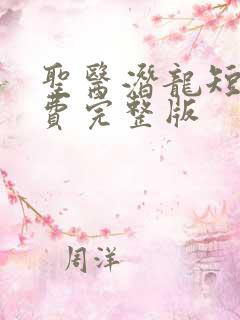 聖醫潛龍短
費完整版
周洋